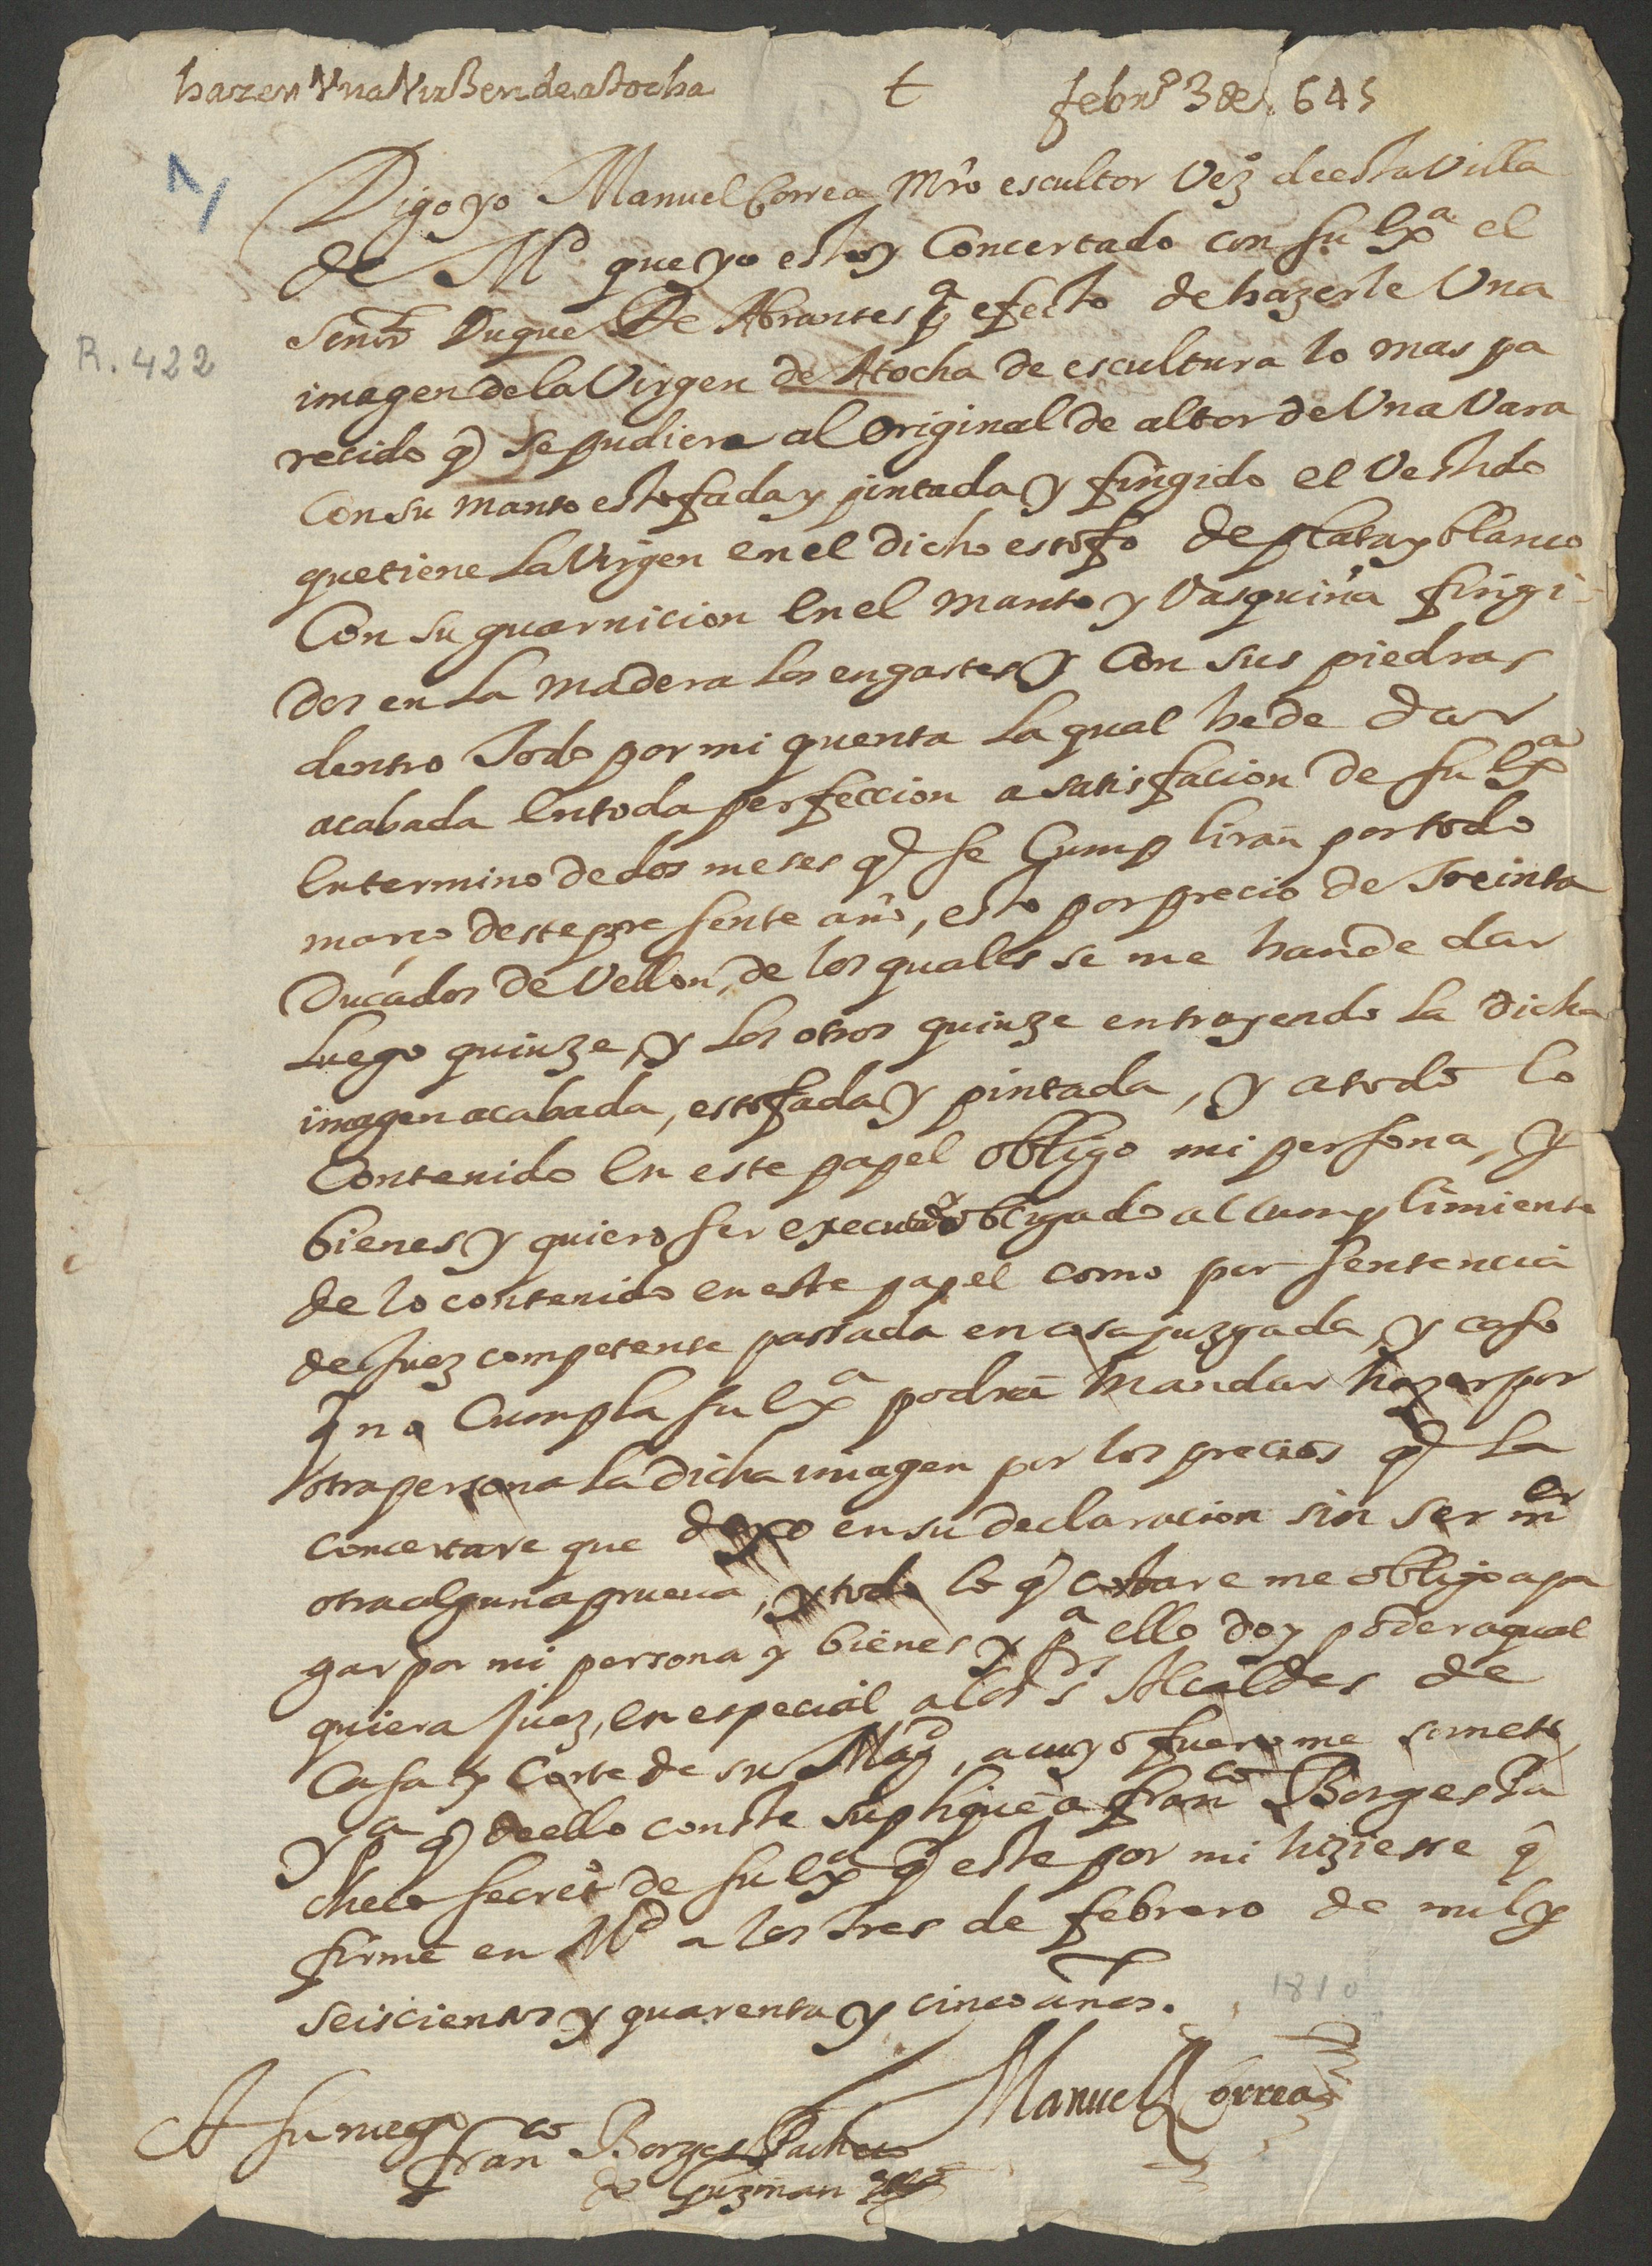 hazer Vna Virgen de atocha
t
febrº 3 de 645
Digo yo Manuel Correa Mro escultor Vezº de esta Villa
de Md que yo estoy Concertado con su Exª el
señor Duque De Abrantes pª efecto de hazerle Una
imagen de la Virgen de Atocha de escultura lo mas pa
recido q se pudiere al Original de altor de Una Vara
Con su manto estofada y pintada y fingido el Vestido
que tiene La Virgen en el dicho estofo de plata y blanco
Con su guarnicion en el manto y Vasquiña fingi-
dos en La madera los engastes y Con sus piedras
dentro Todo por mi quenta La qual he de dar
acabada en toda perfeccion a satisfacion de su Exª
en termino de dos meses q se Cumpliran por todo
março deste presente año, esto por precio de Treinta
Ducados de Vellon, de los quales se me han de dar
Luego quinze, y Los otros quinze entrayendo La dicha
imagen acabada, estofada y pintada, y a todo lo
Contenido en este papel obligo mi persona, y
bienes y quiero ser executado y obligado al cumplimiento
de lo contenido en este papel como por sentencia
de Juez competente passada en cosa juzgada, y caso
q no Cumpla su Exª podrá Mandar hazer por
otra persona la dicha imagen por los precios q La
concertare que dexo en su declaracion sin ser mer
otra alguna prueua, y todo lo q costare me obligo a pa
gar por mi persona y bienes y pª ello doy poder a qual
quiera Juez, en especial a los srs Alcaldes de
Casa y Corte de su Magd, a cuyo fuero me someto,
y pª q de ello conste supliqué a franco Borges Pa
checo secretº de su Exª q este por mi hiziesse q
firmé en Md a los tres de febrero de mil y
seiscientos y quarenta y cinco años.
Manuel Correa
A su ruego
franco Borges Pacheco
de Guzman
R. 422
1810